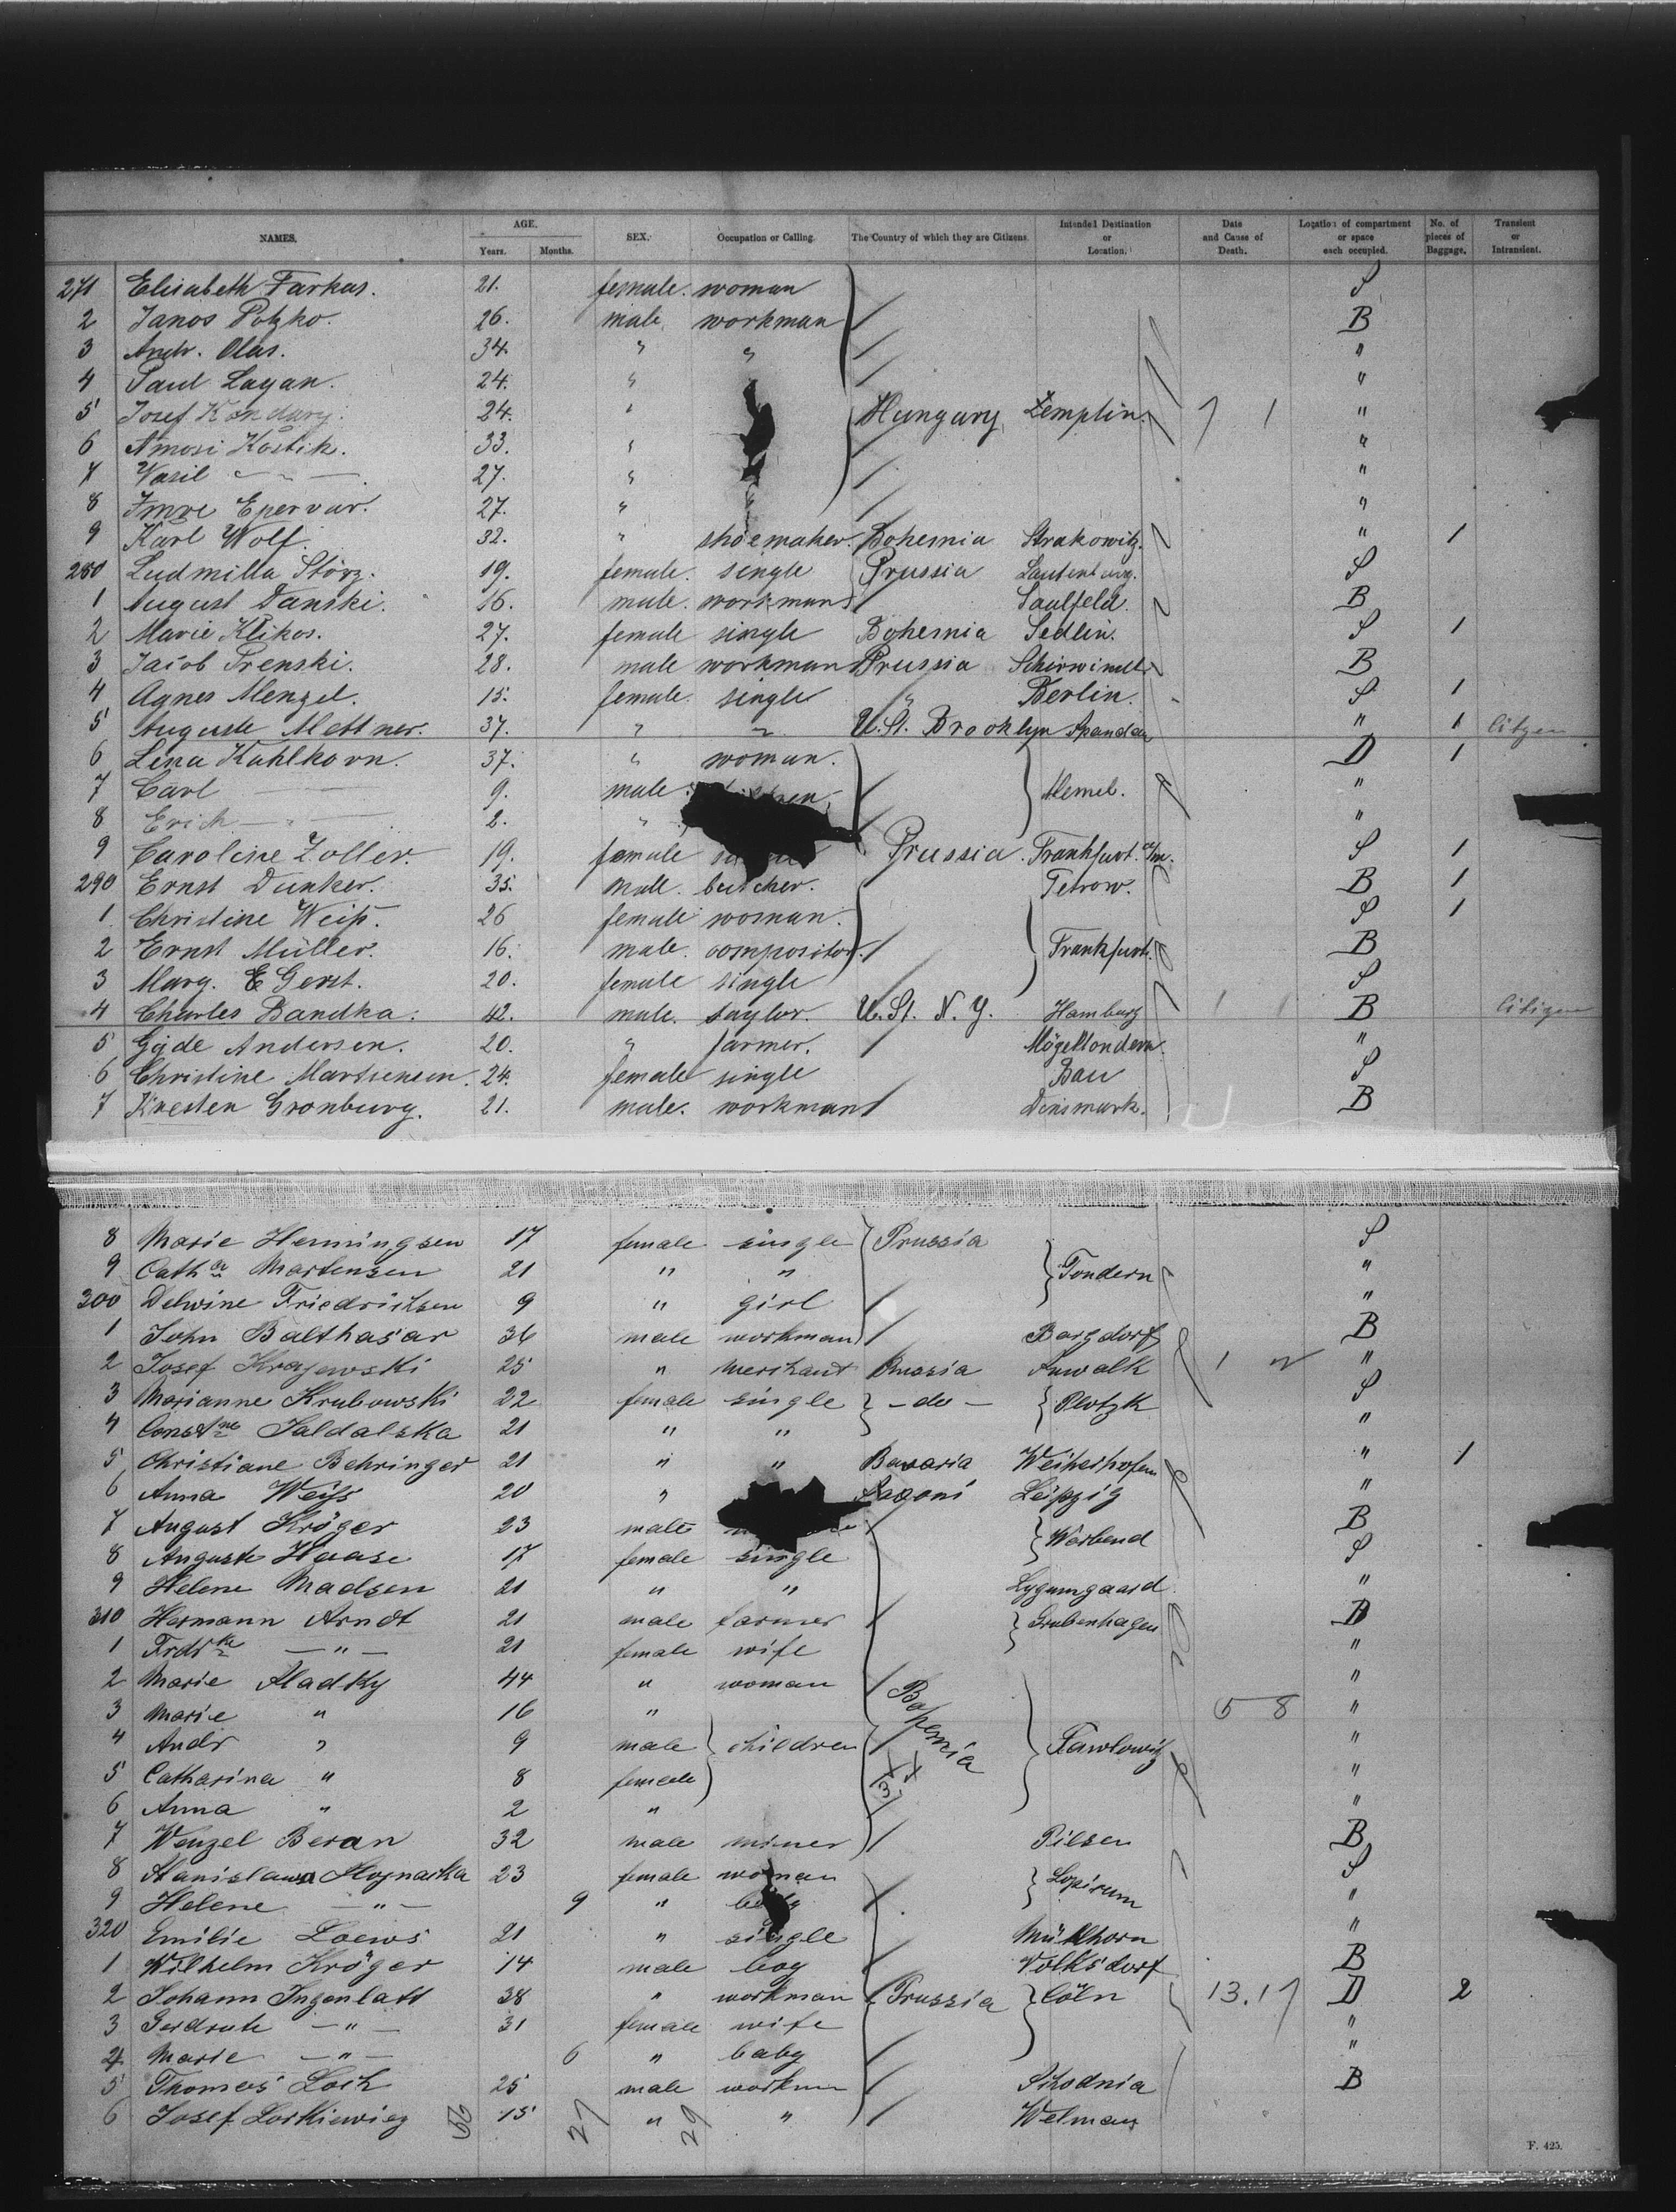 NAMES. AGE. Years. Months. SEX. Occupation or Calling. The Country of which they are Citizens. Intended Destination or Location. Date and Cause of Death. Location of compartment or space each occupied. No. of pieces of Baggage. Transient or Intransient.
271 Elisabeth Farkas. 21. female. woman S
2 Janos Potzko. 26. male. workman B
3 Andr. Olas. 34. " " "
4 Paul Lagan. 24. " "
5 Josef 24. " Hungary Zemplin. "
6 Kostik. 33. " "
7 Wasil — " — 27. " "
8 Imre Epervar. 27. " "
9 Karl Wolf. 32. " shoemaker. Bohemia Strakowitz. " 1
280 Ludmilla Störz. 19. female. single Prussia Lautenburg. S
1 August Danski. 16. male. workman Saulfeld. B
2 Marie Klikos. 27. female single Bohemia Sedlin. S 1
3 Jacob Prenski. 28. male workman Prussia Schirwindt B
4 Agnes Menzel. 15. female. single " Berlin. S 1
5 Auguste Mettner. 37. " " U.St. Brooklyn Spandau " 1 Citizen
6 Lina Kahlkorn. 37. " woman. D 1
7 Carl — 9. male. Memel. "
8 Erich — " — 2. " "
9 Caroline Zoller. 19. female Prussia. Frankfurt a/m. S 1
290 Ernst Dunker. 35. male. butcher. Tetrow. B 1
1 Christine Weiß. 26 female woman. S 1
2 Ernst Müller. 16. male. compositor. Frankfurt. B
3 Marg. E Gerst. 20. female single S
4 Charles Bandka. 42. male. taylor. U.St. N.Y. Hamburg B Citizen
5 Gjde Andersen. 20. " farmer. Mögeltondern. "
6 Christine Martensen. 24. female single Bau S
7 Kresten Gronburg. 21. male. workman Densmark. B
8 Marie Henningsen 17 female single Prussia S
9 Cathne Martensen 21 " " Tondern "
300 Delwine Friedrichsen 9 " girl "
1 John Balthasar 36 male workman Bargdorf B
2 Josef Krajewski 25 " merchant Russia Suwalk "
3 Marianne Krubowski 22 female single — do — Plotzk S
4 Constne Saldalska 21 " " "
5 Christiane Behringer 21 " " Bavaria Weiherhofen " 1
6 Anna Weiss 20 " Saxoni Leipzig "
7 August Kröger 23 male Warbend B
8 Auguste Haase 17 female single S
9 Helene Madsen 21 " " Lygumgaard "
310 Hermann Arndt 21 male farmer Grubenhagen B
1 Frdrke — " — 21 female wife "
2 Marie Sladky 44 " woman Bohemia "
3 Marie " 16 " "
4 Andr " 9 male children "
5 Catharina " 8 female "
6 Anna " 2 " "
7 Wenzel Beran 32 male miner Pilsen B
8 Stanislawa Hojnacka 23 female woman S
9 Helene — " — 9 " "
320 Emilie Loews 21 " single Mükhorn "
1 Wilhelm Kröger 14 male boy Volksdorf B
2 Johann Ingenlatt 38 " workman Prussia Cöln 13.17 D 2
3 Gerdrute — " — 31 female wife "
4 Marie — " — 6 " baby "
5 Thomas Loch 25 male workm Schodnia B
6 Josef Lorkiewicz 15 " " 27 29
F. 425.